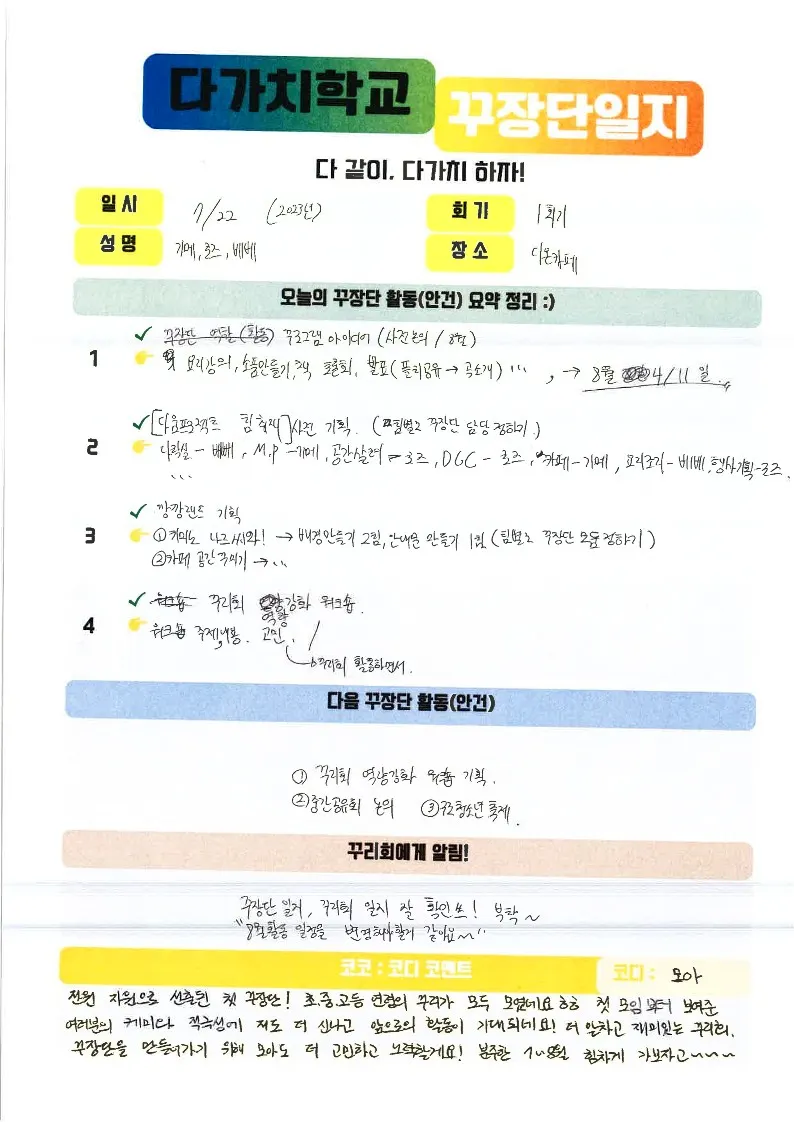 다가치학교
꾸장단일지
다 같이. 다가치 하자!
일시 7/22 (2023년) 회기 1회기
성명 기메, 로즈, 베베 장소 다온카페
오늘의 꾸장단 활동(안건) 요약 정리 :)
1 꾸장단 역할(활동) 프로그램 아이디어 (사전논의 / 8월)
요리강의, 소품만들기, 책, 토론회, 발표(플리공유 → 곡소개) ... , → 8월 4/11 일
2 [다음프로젝트 팀 취재] 사전 기획. (팀별로 꾸장단 담당 정하기.)
다락실 - 베베, M.P - 기메, 공간살려 - 로즈, DGC - 로즈, 카페 - 기메, 요리조리 - 베베, 행사기획 - 로즈.
...
3 깡깡랜드 기획
① 키미노 나조씨와! → 배경만들기 2팀, 안내문 만들기 1팀 (팀별로 꾸장단 정하기)
② 카페 공간 꾸미기 → ...
4 워크숍 꾸리회 역량강화 워크숍.
워크숍 주제, 내용. 고민.
↳ 꾸리회 활동하면서.
다음 꾸장단 활동(안건)
① 꾸리회 역량강화 워크숍 기획.
② 중간공유회 논의 ③ 구로청소년 축제.
꾸리회에게 알림!
꾸장단 일지, 꾸리회 일지 잘 확인쓰! 부탁~
"8월활동 일정을 변경해야할거 같아요~"
코코 : 코디 코멘트 코디 : 모아
전원 자원으로 선출된 첫 꾸장단! 초.중.고등 연령의 꾸리가 모두 모였네요 ㅎㅎ 첫 모임부터 보여준
여러분의 케미와 적극성에 저도 더 신나고 앞으로의 활동이 기대되네요! 더 알차고 재미있는 꾸리회,
꾸장단을 만들어가기 위해 모아도 더 고민하고 노력할게요! 분주한 7~8월 힘차게 가보자고~~~